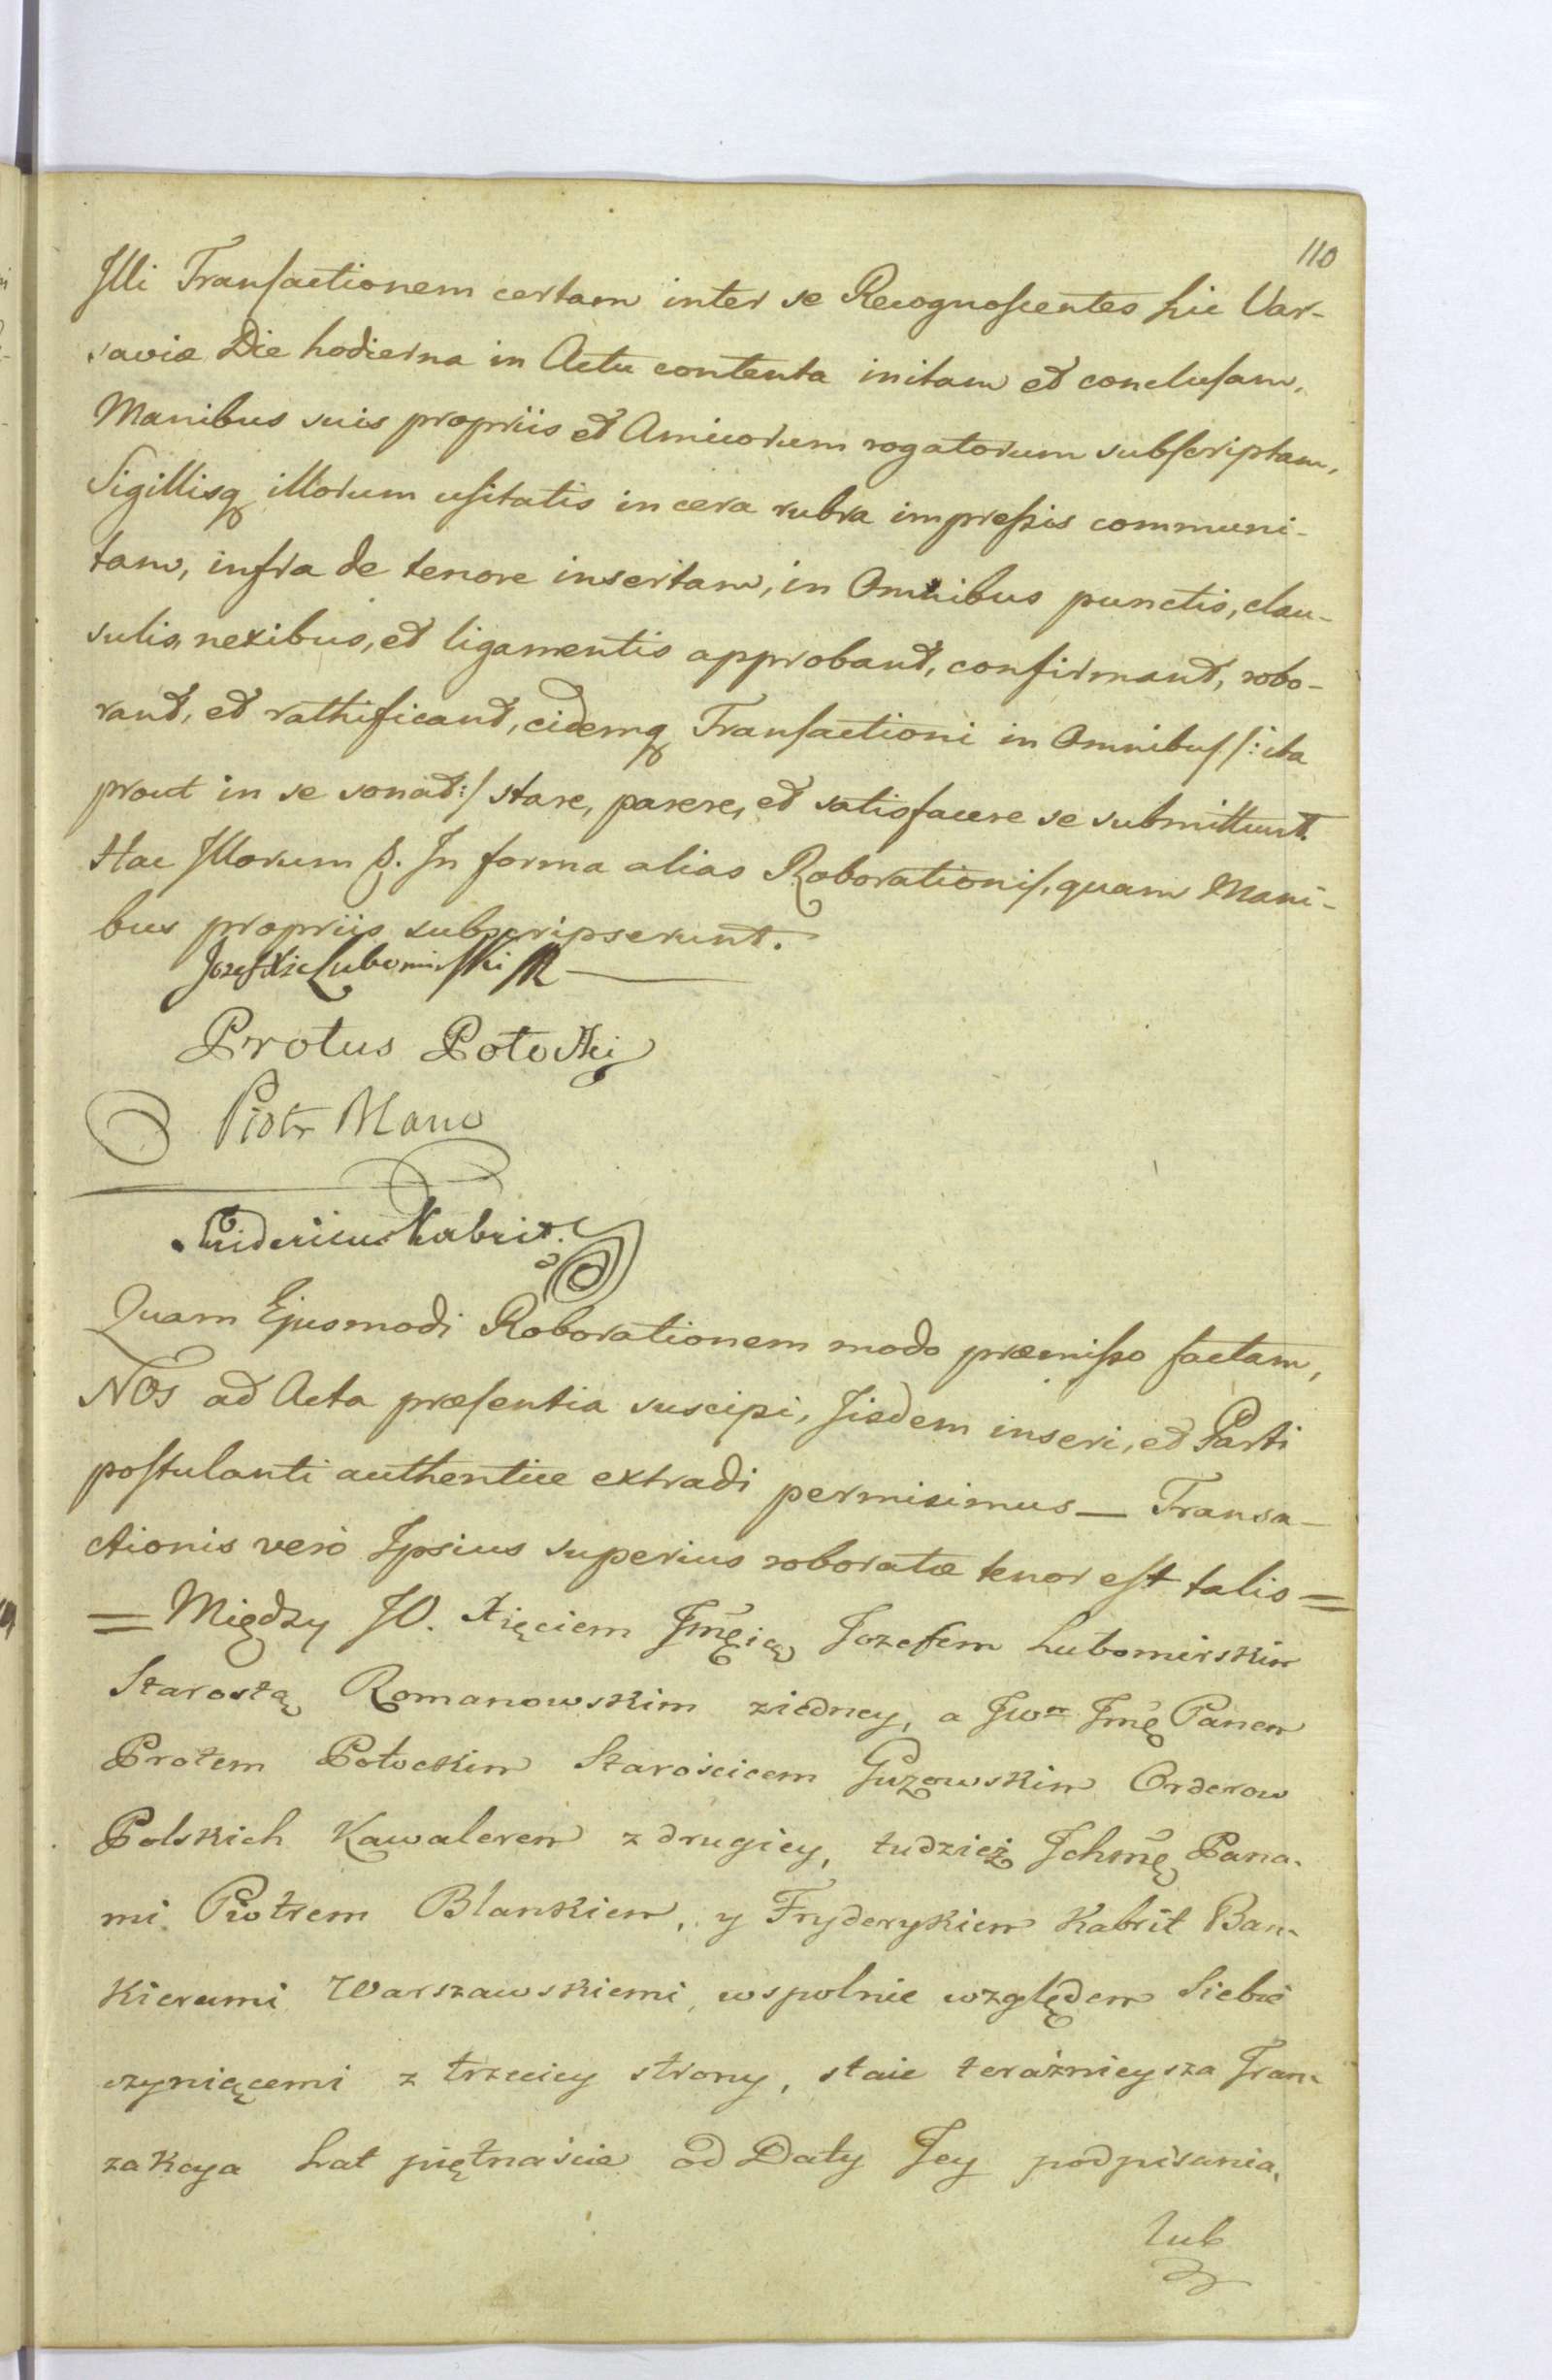 110
Illi Transactionem certam inter se Recognoscentes hic Var-
saviæ Die hodierna in Actu contenta initam et conclusam,
Manibus suis propriis et Amicorum rogatorum subscriptam,
Sigillisq illorum usitatis in cera rubra impressis communi-
tam, infra de tenore insertam, in Omnibus punctis, clau-
sulis, nexibus, et ligamentis approbant, confirmant, robo-
rant, et rathificant, eidemq Transactioni in Omnibus /: ita
prout in se sonat :/ stare, parere, et satisfacere se submittunt.
Hac Illorum In forma alias Roborationis, quam Mani-
bus propriis subscripserunt.
Jozef Xże Lubomirski
Protus Potocki
Piotr Blanc
Fridericus Kabrit
Quam Ejusmodi Roborationem modo præmisso factam,
NOS ad Acta præsentia suscipi, Iisdem inseri, et Parti
postulanti authentice extradi permisimus — Transa-
ctionis verò Ipsius superius roboratæ tenor est talis =
= Między JO. Xięciem Jmęią Jozefem Lubomirskim
Starostą Romanowskim ziedney, a Jwm Jmę Panem
Protem Potockim Starościcem Guzowskim Orderow
Polskich Kawalerem z drugiey, tudzież Jchmę Pana-
mi Piotrem Blankiem, y Fryderykiem Kabrit Ban-
kierami Warszawskiemi, wspolnie względem Siebie
czyniącemi z trzeciey strony, staie teraźnieysza Tran-
zakcya Lat piętnaście od Daty Jey podpisania,
lub